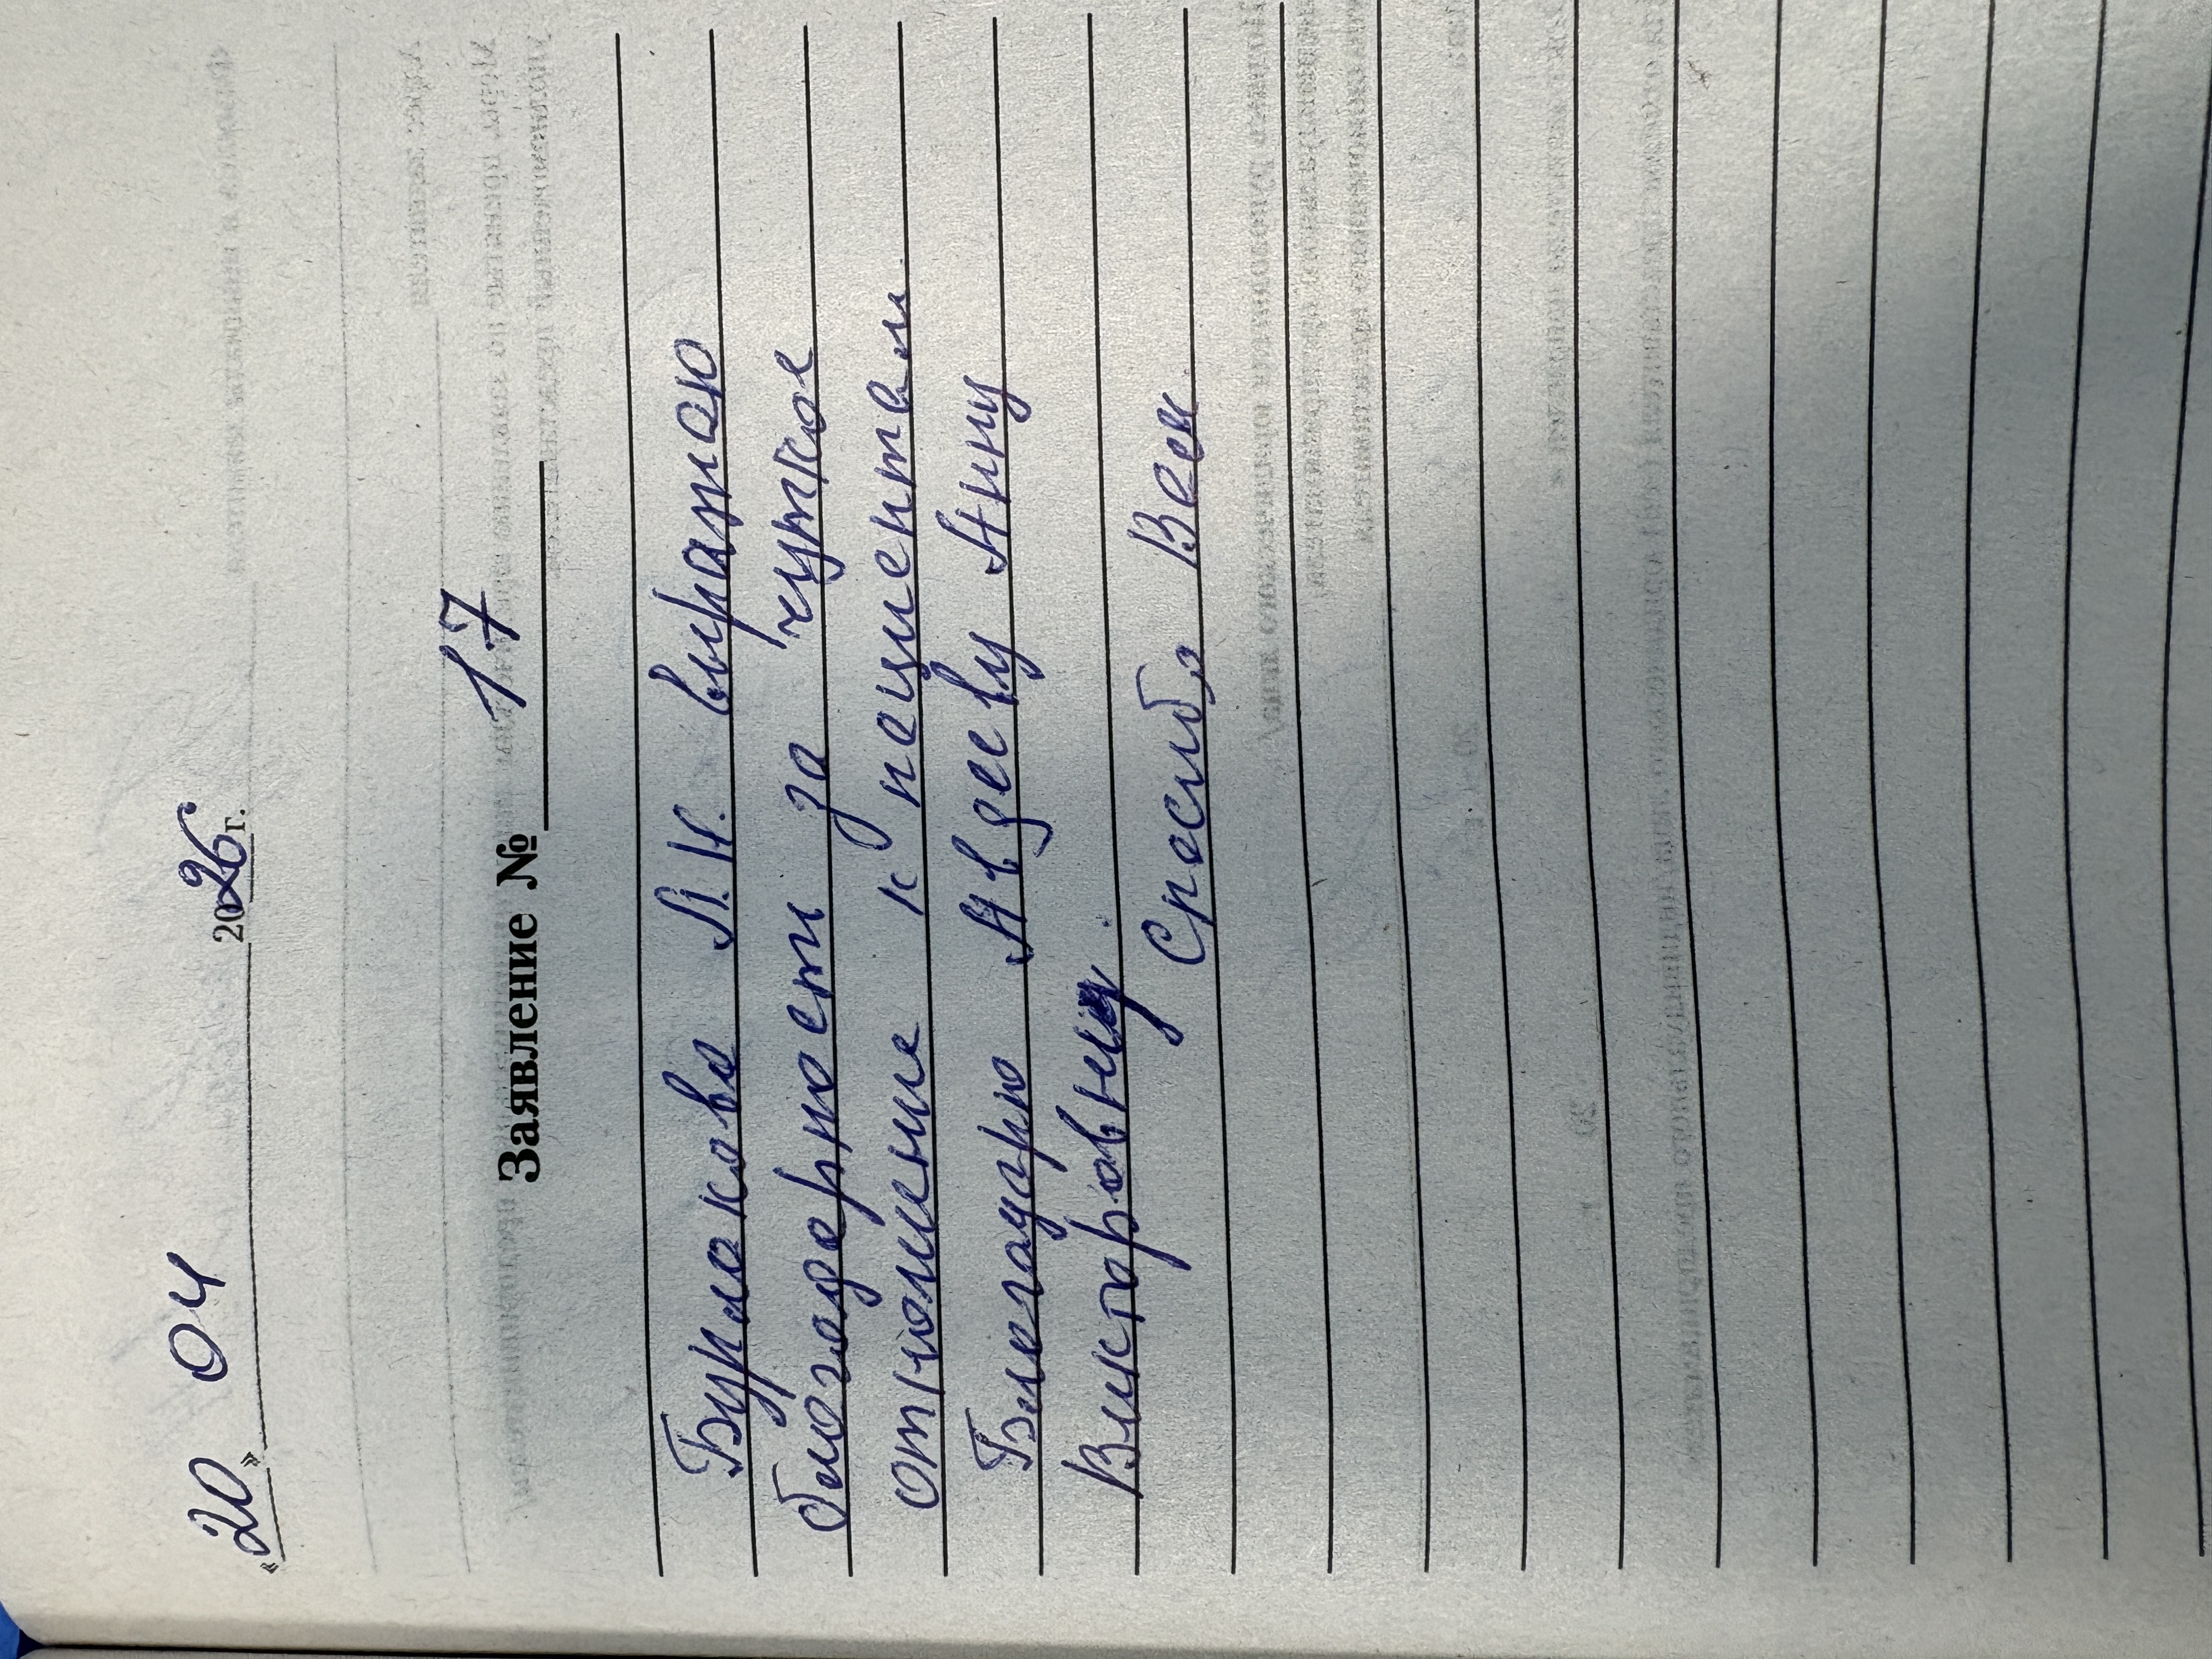 «20» 04 2026 г.
Заявление № 17
Бурлакова Л.Н. выражаю
благодарности за чуткое
отношение к пациентам.
Благодарю Авдееву Анну
Викторовну.
Спасибо Вам